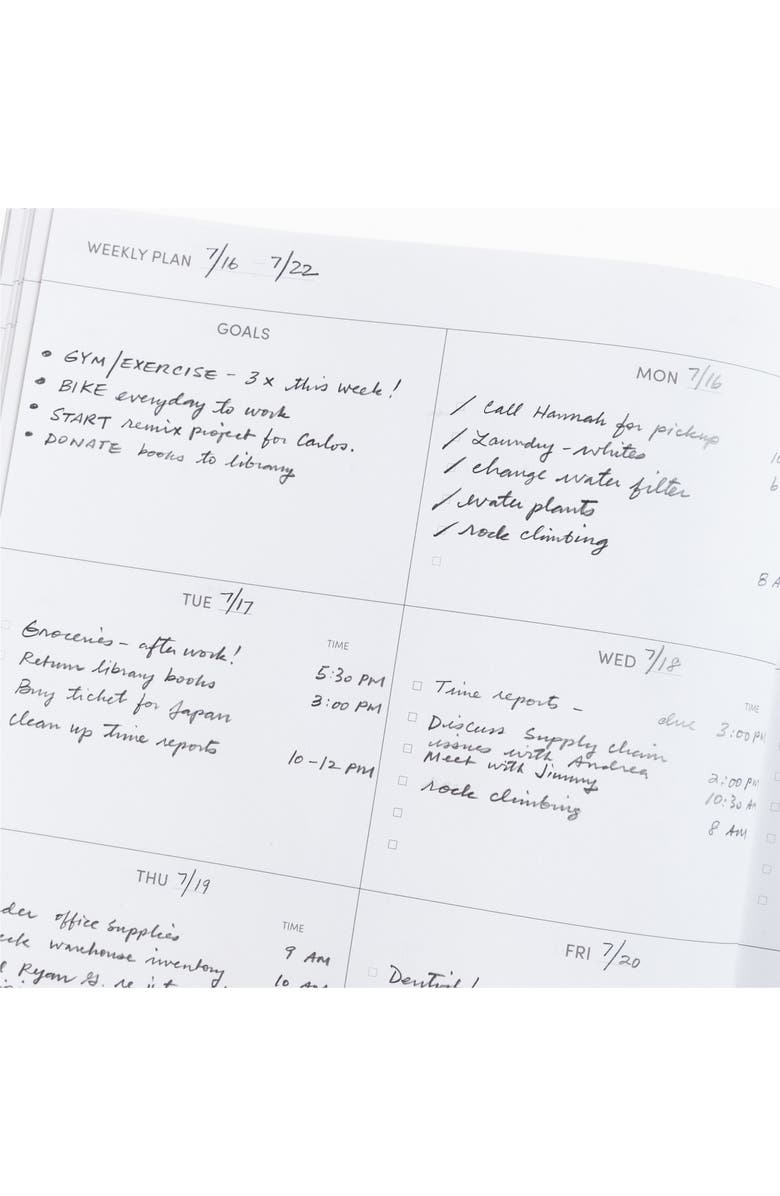 WEEKLY PLAN 7/16 7/22
GOALS
• GYM/EXERCISE - 3x this week!
• BIKE everyday to work
• START remix project for Carlos.
• DONATE books to library
MON 7/16
/ Call Hannah for pickup
/ Laundry - whites
/ change water filter
/ water plants
/ rock climbing
8 A
TUE 7/17
TIME
Groceries - after work! 5:30 PM
Return library books 3:00 PM
Buy ticket for Japan
clean up time reports 10-12 PM
WED 7/18
TIME
Time reports - due 3:00 PM
Discuss Supply chain
issues with Andrea 2:00 PM
Meet with Jimmy 10:30 AM
rock climbing 8 AM
THU 7/19
TIME
der office supplies 9 AM
eck warehouse inventory 10 AM
Ryan G.
FRI 7/20
Dentist!